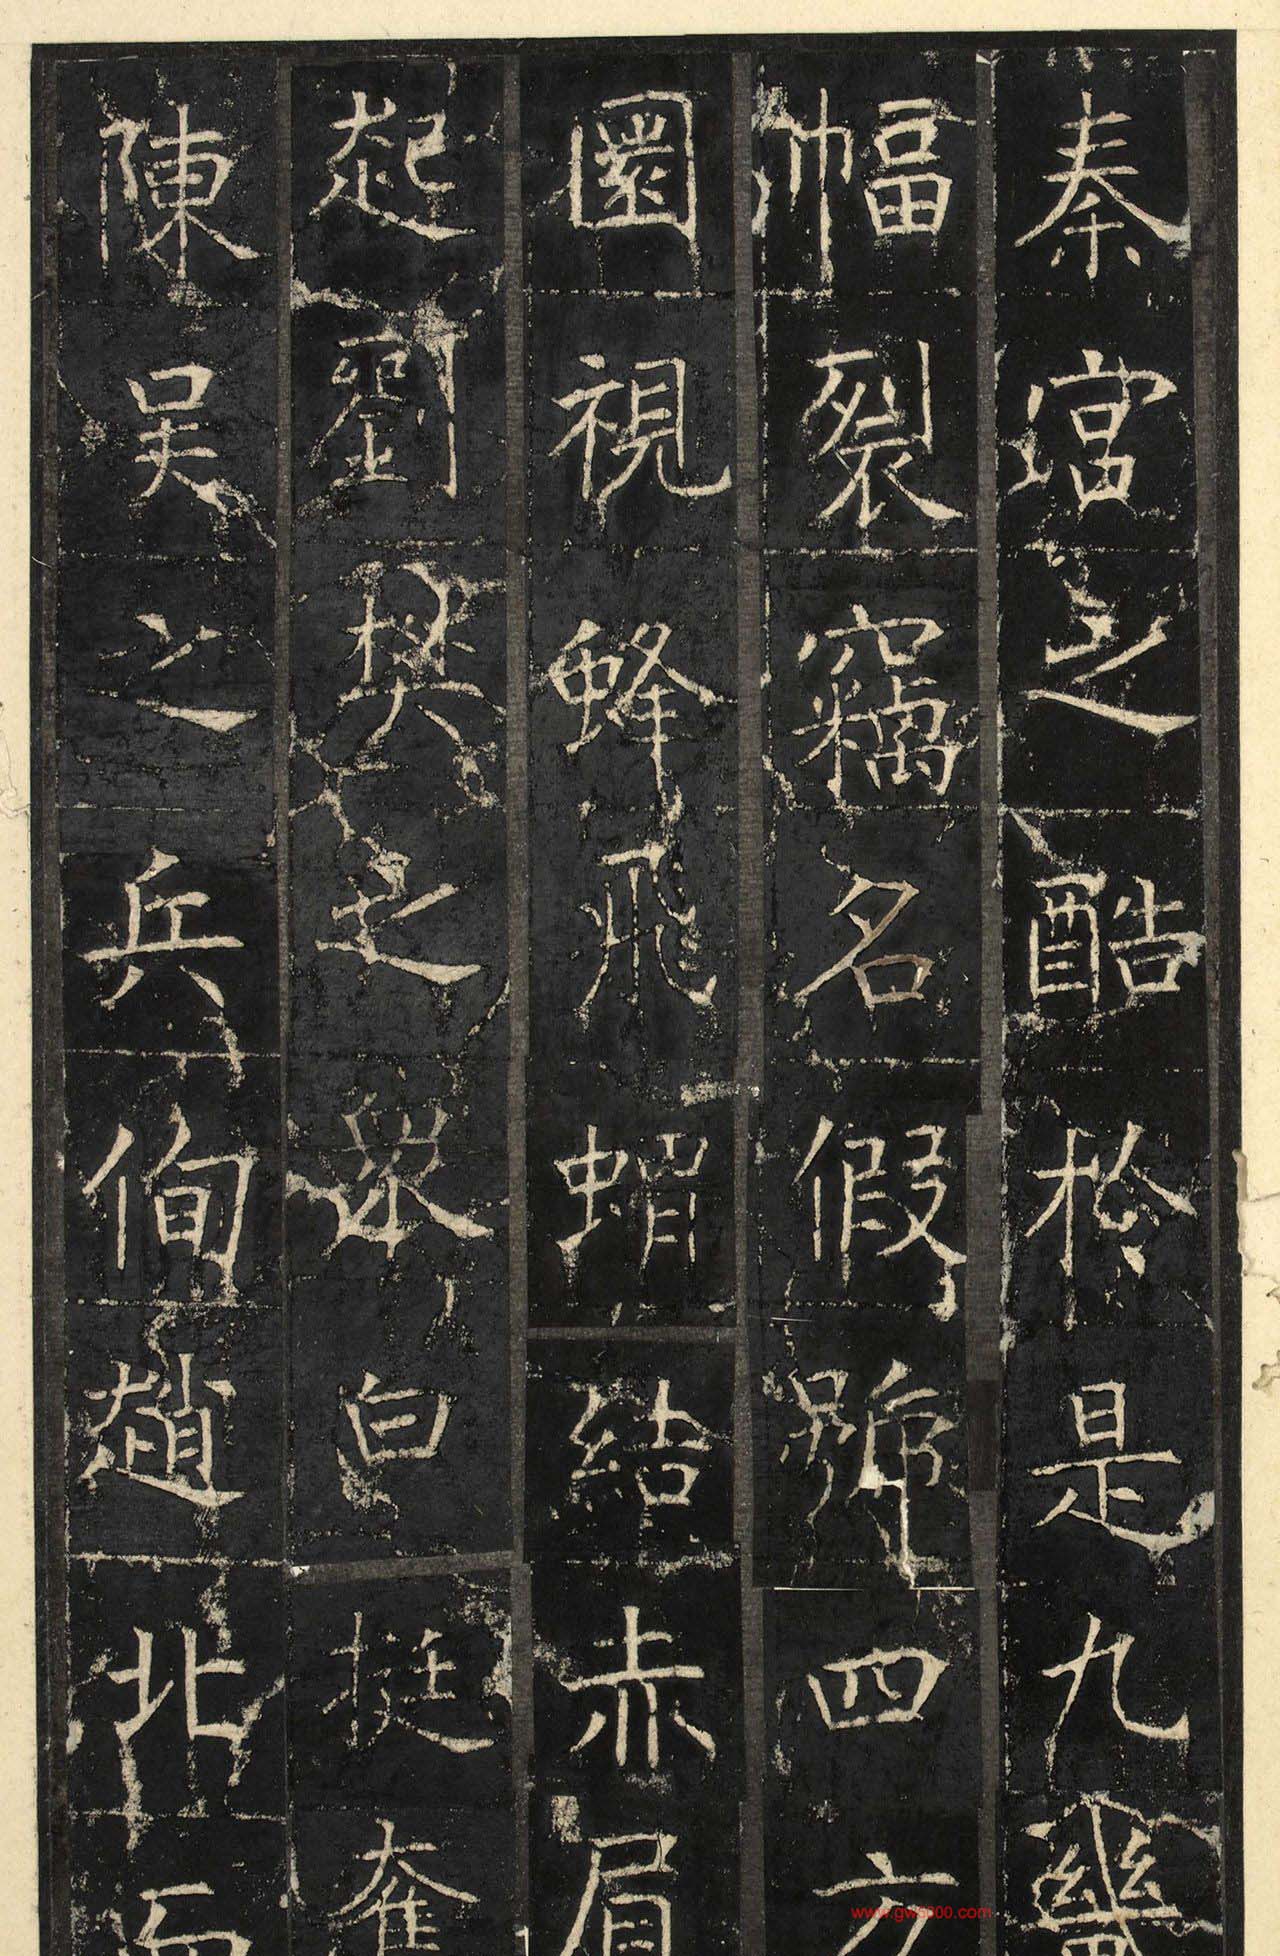 秦當之酷於是九畿
幅裂竊名假號四方
圜視蜂飛蝟結赤眉
起劉樊之眾白挺奮
陳吳之兵侚趙北而
www.gw5000.com